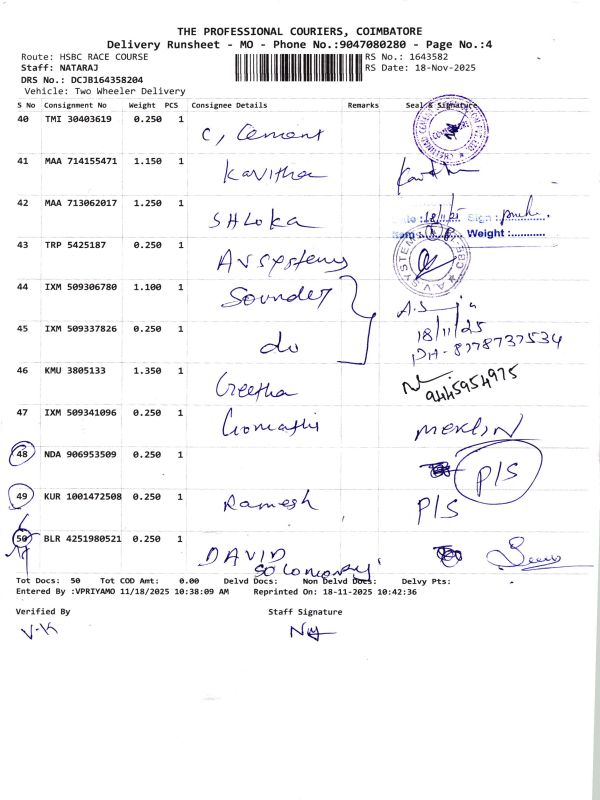 THE PROFESSIONAL COURIERS, COIMBATORE
Delivery Runsheet - MO - Phone No.:9047080280 - Page No.:4
Route: HSBC RACE COURSE
RS No.: 1643582
Staff: NATARAJ
RS Date: 18-Nov-2025
DRS No.: DCJB164358204
Vehicle: Two Wheeler Delivery
S No Consignment No Weight PCS Consignee Details Remarks Seal & Signature
40 TMI 30403619 0.250 1 C, Cement
41 MAA 714155471 1.150 1 Kavitha
42 MAA 713062017 1.250 1 SHLOKA 18/11/25 Sign :
Weight :
43 TRP 5425187 0.250 1 AV Systems
44 IXM 509306780 1.100 1 Sounder
45 IXM 509337826 0.250 1 do 18/11/25
PH - 8778737534
46 KMU 3805133 1.350 1 Geetha 9445954975
47 IXM 509341096 0.250 1 Gomathi MERLIN
48 NDA 906953509 0.250 1 P/S
49 KUR 1001472508 0.250 1 Ramesh P/S
50 BLR 4251980521 0.250 1 DAVID
Tot Docs: 50 Tot COD Amt: 0.00 Delvd Docs: Non Delvd Docs: Delvy Pts:
Entered By :VPRIYAMO 11/18/2025 10:38:09 AM Reprinted On: 18-11-2025 10:42:36
Verified By Staff Signature
V-K